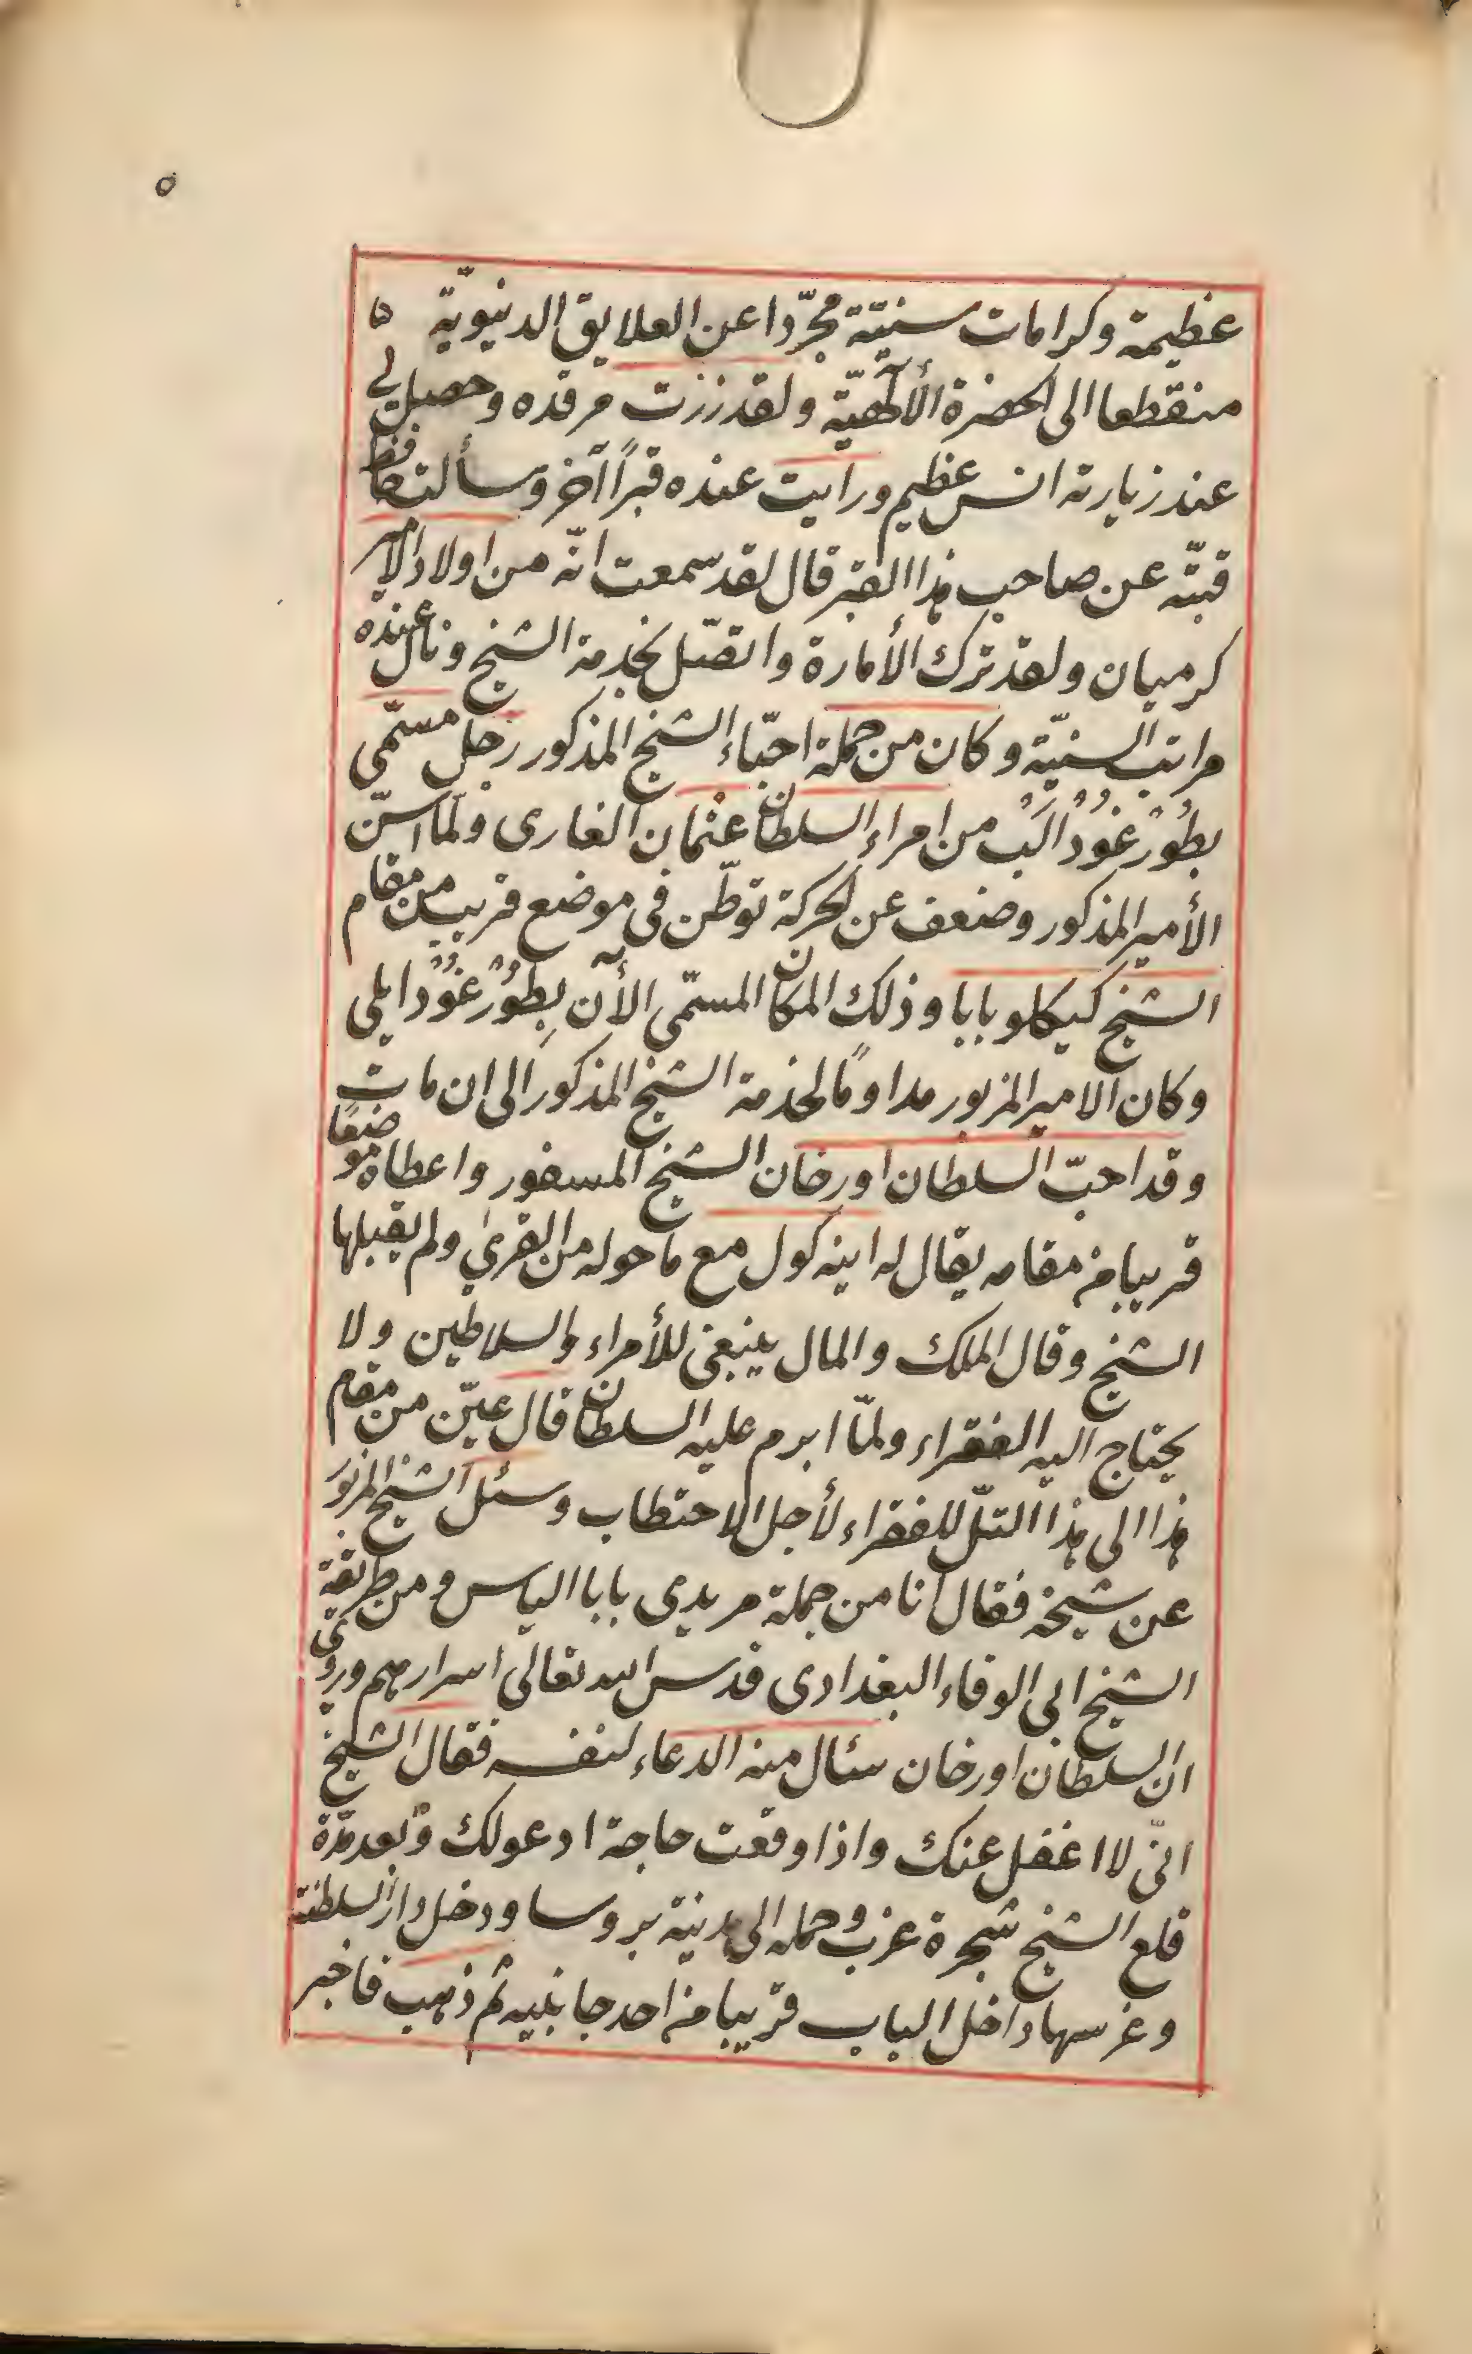 ٥
عظيمة وكرامات سنيّة مجرّدا عن العلايق الدنيويّة
منقطعا الى الحضرة الألٰهيّة ولقد زرت مرقده وحصل لى
عند زيارته انس عظيم ورايت عنده قبرًا آخر وسألت حافظ
قبّته عن صاحب هذا القبر قال لقد سمعت انّه من اولاد الامير
كرميان ولقد ترك الأمارة واتصّل بخدمة الشيخ ونال عنده
مراتب السنيّة وكان من جملة احبّاء الشيخ المذكور رجل مسمّى
بطُورْغُودْ اَلَبْ من امراء السلطان عثمان الغازى ولمّا اسنّ
الأمير المذكور وضعف عن الحركة توطّن فى موضع قريب من مقام
الشيخ كيكلو بابا وذلك المكان المسمّى الآن بِطُورْغُودْ ايلى
وكان الامير المزبور مداومًا لخدمة الشيخ المذكور الى ان مات
وقد احبّ السلطان اورخان الشيخ المسفور واعطاه موضعًا
قريبا من مقامه يقال له اينه كول مع ما حوله من القرىٰ ولم يقبلها
الشيخ وقال الملك والمال ينبغى للأمراء والسلاطين ولا
يحتاج اليه الفقراء ولمّا ابرم عليه السلطان قال عيّن من مقام
هذا الى هذا التلّ للفقراء لأجل الاحتطاب وسئل الشيخ المزبور
عن شيخه فقال انا من جملة مريدى بابا الياس ومن طريقة
الشيخ ابى الوفاء البغدادى قدس الله تعالى اسرارهم وروى
ان السلطان اورخان سئال منه الدعاء لنفسه فقال الشيخ
انّى لا اغفل عنك واذا وقعت حاجة ادعولك وبعد مدّة
قلع الشيخ شجرة عزب وحمله الى مدينة بروسا ودخل دار السلطنة
وغرسها داخل الباب قريبا من احد جانبيه ثم ذهب فاخبر